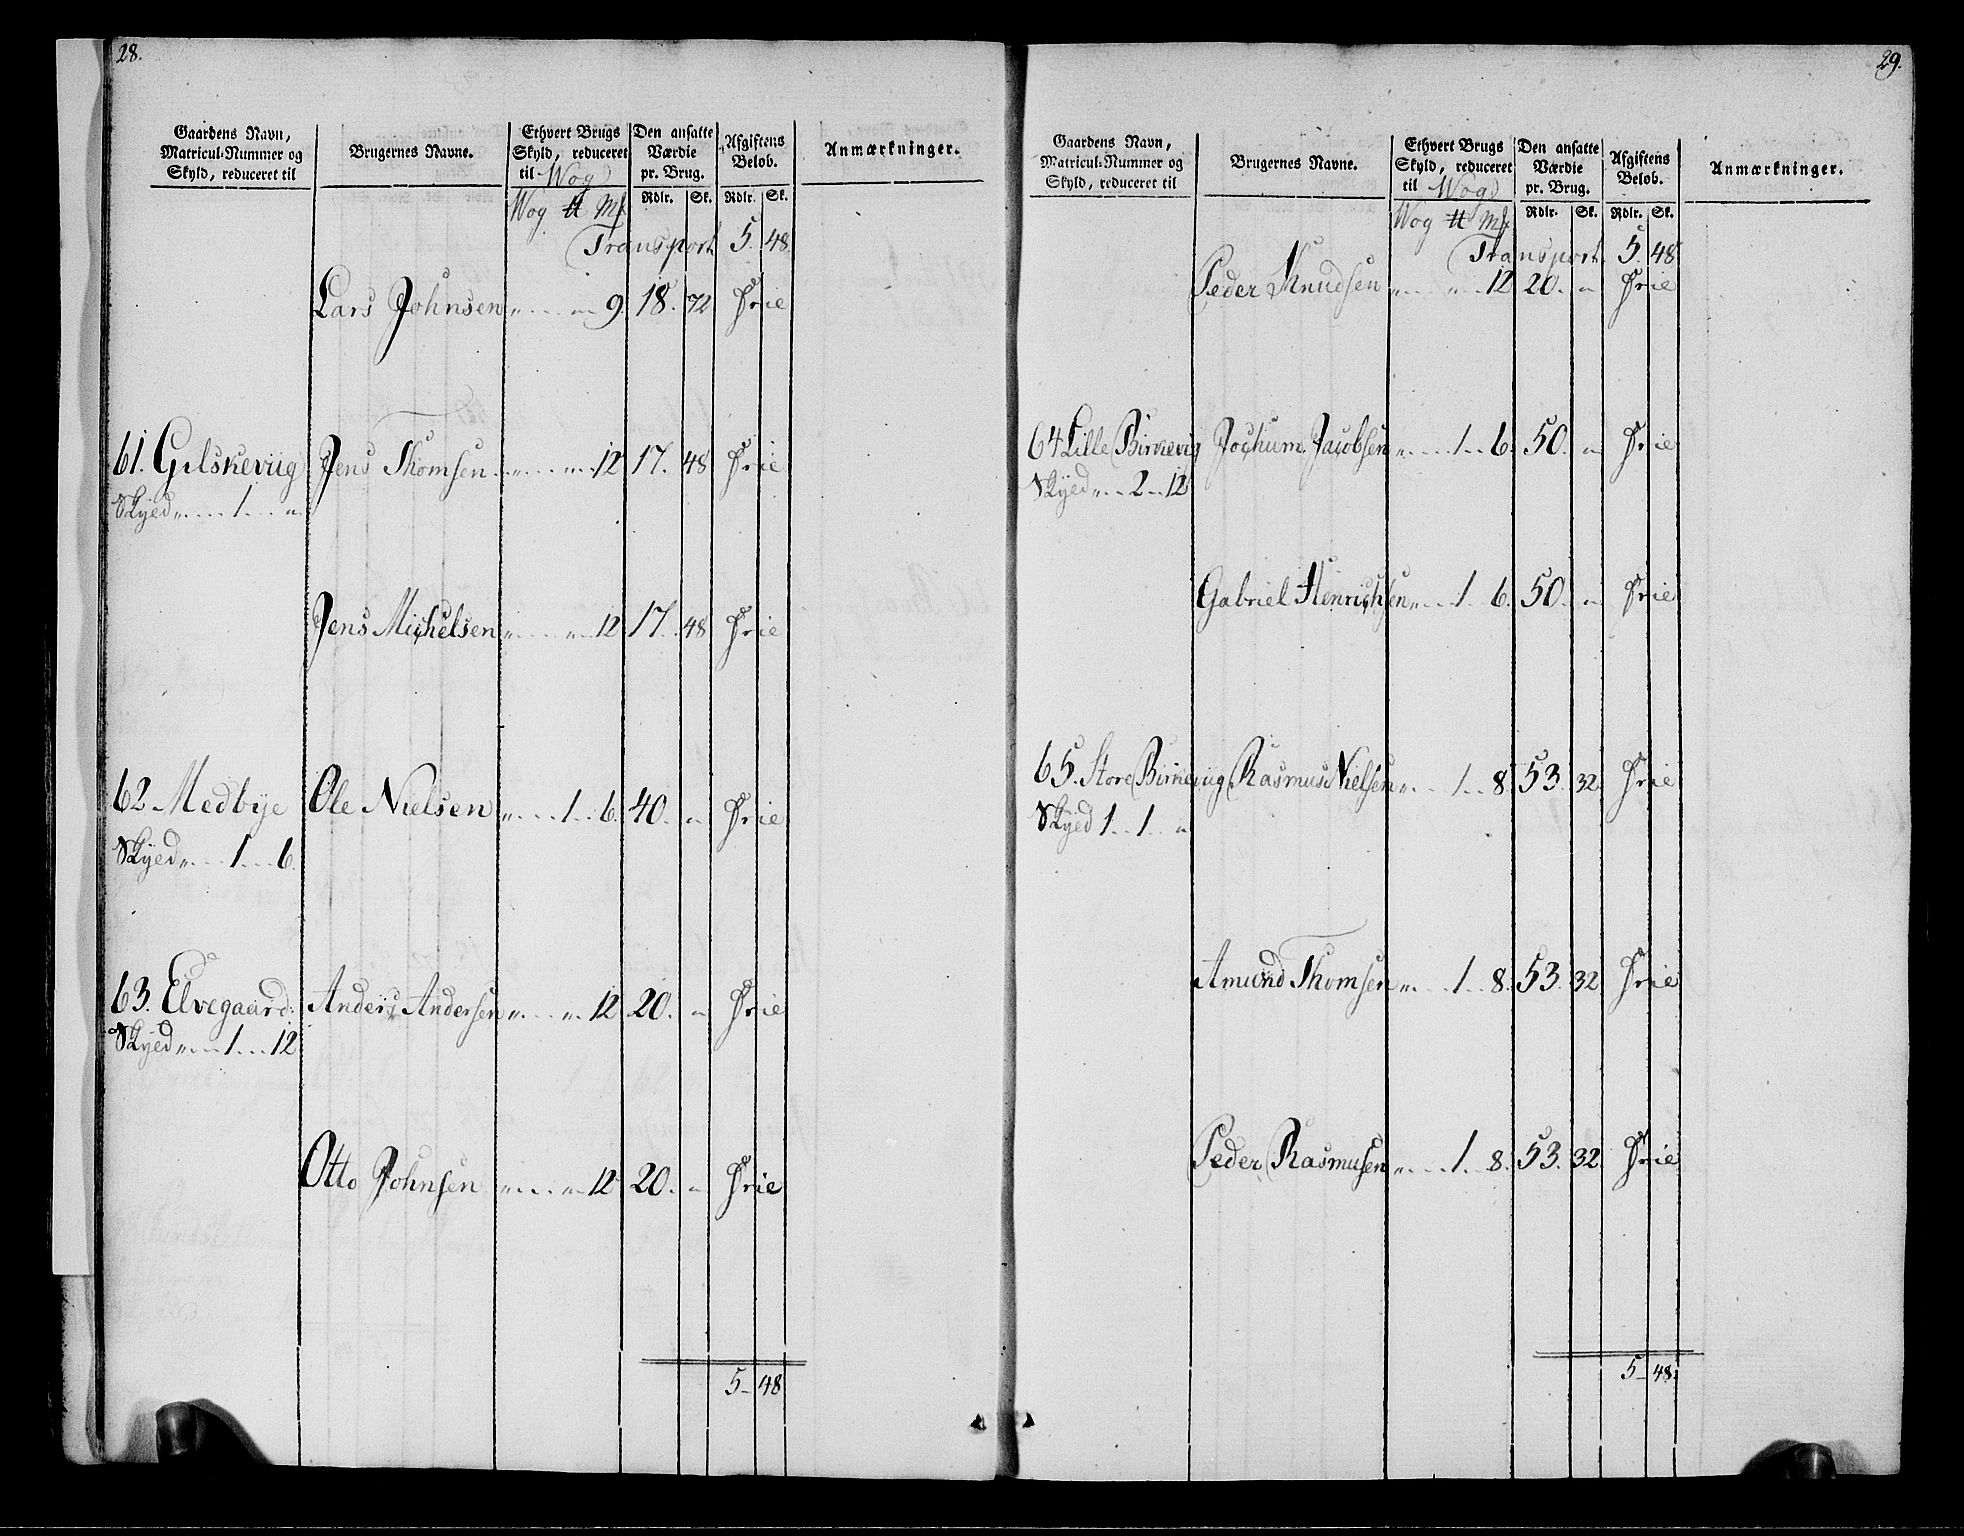 28.
Gaardens Navn, Matricul-Nummer og Skyld, reduceret til
Brugernes Navne.
Ethvert Brugs Skyld, reduceret til Wog
Den ansatte Værdie pr. Brug.
Afgiftens Beløb.
Anmærkninger.
Wog ℔ Mk Rdlr. Sk. Rdlr. Sk.
Transport 5. 48.
Lars Johnsen „ „ 9. 18. 72 Frie
61. Gilskeviig Jens Thomsen „ „ 12 17. 48 Frie
Skyed „ 1 „
Jens Michelsen „ „ 12 17. 48 Frie
62 Medbye Ole Nielsen „ 1 6. 40. „ Frie
Skyed „ 1 6.
63. Elvegaard Anders Andersen „ „ 12 20. „ Frie
Skyed „ 1 12
Otto Johnsen „ „ 12 20. „ Frie
5 48
29.
Gaardens Navn, Matricul-Nummer og Skyld, reduceret til
Brugernes Navne.
Ethvert Brugs Skyld, reduceret til Wog
Den ansatte Værdie pr. Brug.
Afgiftens Beløb.
Anmærkninger.
Wog ℔ Mk Rdlr. Sk. Rdlr. Sk.
Transport 5. 48
Peder Knudsen „ „ 12 20. „ Frie
64 Lille Birkevig Jochum Jacobsen „ 1 6. 50. „ Frie
Skyed „ 2 12
Gabriel Henrichsen „ 1 6. 50. „ Frie
65. Store Birkeviig Rasmus Nielsen „ 1 8. 53. 32. Frie
Skyed 1 1 „
Amund Thomsen „ 1 8. 53. 32 Frie
Peder Rasmusen „ 1 8. 53. 32. Frie
5 48.